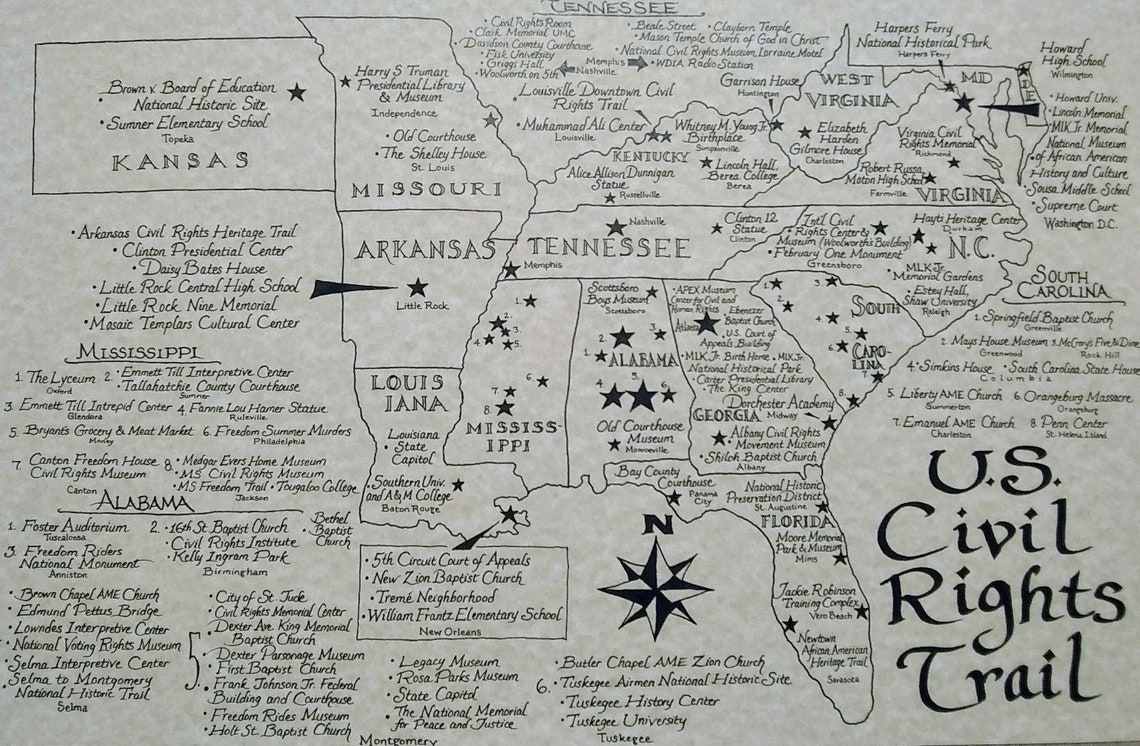 TENNESSEE
• Civil Rights Room
• Clark Memorial UMC
• Davidson County Courthouse
• Fisk University
• Griggs Hall
• Woolworth on 5th
Nashville
• Beale Street • Clayborn Temple
• Mason Temple Church of God in Christ
• National Civil Rights Museum, Lorraine Motel
Memphis
• WDIA Radio Station
Brown v. Board of Education
National Historic Site
• Sumner Elementary School
Topeka
KANSAS
Harry S Truman
Presidential Library
& Museum
Independence
• Old Courthouse
• The Shelley House
St. Louis
MISSOURI
Louisville Downtown Civil
Rights Trail
• Muhammad Ali Center
Louisville
Whitney M. Young Jr.
Birthplace
Simpsonville
KENTUCKY
Alice Allison Dunnigan
Statue
Russellville
Lincoln Hall,
Berea College
Berea
Garrison House
Huntington
WEST
VIRGINIA
Elizabeth
Harden
Gilmore House
Charleston
Harpers Ferry
National Historical Park
Harpers Ferry
MD
DE
Howard
High School
Wilmington
• Howard Univ.
• Lincoln Memorial
• MLK Jr. Memorial
National Museum
• of African American
History and Culture
• Sousa Middle School
• Supreme Court
Washington D.C.
Virginia Civil
Rights Memorial
Richmond
Robert Russa
Moton High School
Farmville
VIRGINIA
• Arkansas Civil Rights Heritage Trail
• Clinton Presidential Center
• Daisy Bates House
• Little Rock Central High School
• Little Rock Nine Memorial
• Mosaic Templars Cultural Center
ARKANSAS
Little Rock
TENNESSEE
Nashville
Memphis
Clinton 12
Statue
Clinton
Int'l Civil
• Rights Center &
Museum (Woolworth's Building)
• February One Monument
Greensboro
Hayti Heritage Center
Durham
N.C.
MLK Jr.
Memorial Gardens
Estey Hall,
Shaw University
Raleigh
SOUTH
CAROLINA
1. Springfield Baptist Church
Greenville
2. Mays House Museum
Greenwood
3. McCrory's Five & Dime
Rock Hill
4. • Simkins House • South Carolina State House
Columbia
5. Liberty AME Church
Summerton
6. Orangeburg Massacre
Orangeburg
7. Emanuel AME Church
Charleston
8. Penn Center
St. Helena Island
MISSISSIPPI
1. The Lyceum
Oxford
2. • Emmett Till Interpretive Center
• Tallahatchie County Courthouse
Sumner
3. Emmett Till Intrepid Center
Glendora
4. Fannie Lou Hamer Statue
Ruleville
5. Bryant's Grocery & Meat Market
Money
6. Freedom Summer Murders
Philadelphia
7. Canton Freedom House
Civil Rights Museum
Canton
8. • Medgar Evers Home Museum
• MS Civil Rights Museum
• MS Freedom Trail • Tougaloo College
Jackson
LOUIS
IANA
Louisiana
• State
Capitol
• Southern Univ.
and A&M College
Baton Rouge
1.
2.
3.
4.
5.
6.
7.
8.
MISSISS-
IPPI
Scottsboro
Boys Museum
Scottsboro
2.
3.
1.
ALABAMA
4.
5.
6.
Old Courthouse
Museum
Monroeville
• APEX Museum
Center for Civil and
Human Rights
Atlanta
Ebenezer
Baptist Church
• U.S. Court of
Appeals Building
• MLK Jr. Birth Home • MLK Jr.
National Historical Park
• Carter Presidential Library
• The King Center
Dorchester Academy
Midway
GEORGIA
• Albany Civil Rights
Movement Museum
• Shiloh Baptist Church
Albany
1.
2.
3.
4.
5.
6.
7.
8.
SOUTH
CARO-
LINA
Bay County
Courthouse
Panama
City
National Historic
Preservation District
St. Augustine
FLORIDA
Moore Memorial
Park & Museum
Mims
Jackie Robinson
Training Complex
Vero Beach
Newtown
African American
Heritage Trail
Sarasota
ALABAMA
1. Foster Auditorium
Tuscaloosa
2. • 16th St. Baptist Church
• Civil Rights Institute
• Kelly Ingram Park
• Bethel
Baptist
Church
Birmingham
3. Freedom Riders
National Monument
Anniston
• Brown Chapel AME Church
• Edmund Pettus Bridge
• Lowndes Interpretive Center
• National Voting Rights Museum
• Selma Interpretive Center
• Selma to Montgomery
National Historic Trail
Selma
5.
• City of St. Jude
• Civil Rights Memorial Center
• Dexter Ave. King Memorial
Baptist Church
• Dexter Parsonage Museum
• First Baptist Church
• Frank Johnson Jr. Federal
Building and Courthouse
• Freedom Rides Museum
• Holt St. Baptist Church
• Legacy Museum
• Rosa Parks Museum
• State Capitol
• The National Memorial
for Peace and Justice
Montgomery
• 5th Circuit Court of Appeals
• New Zion Baptist Church
• Tremé Neighborhood
• William Frantz Elementary School
New Orleans
6.
• Butler Chapel AME Zion Church
• Tuskegee Airmen National Historic Site
• Tuskegee History Center
• Tuskegee University
Tuskegee
N
U.S.
Civil
Rights
Trail